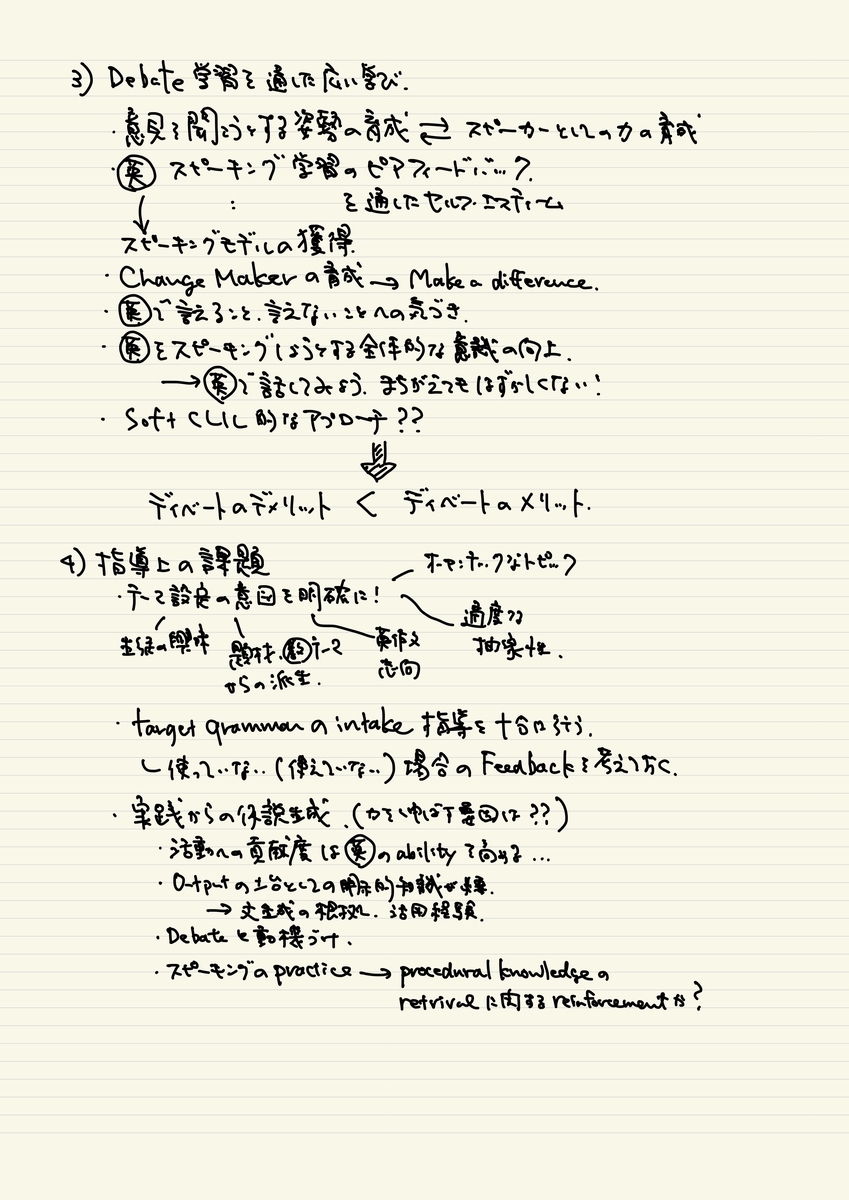 3) Debate 学習を通した広い学び.
・意見を聞こうとする姿勢の育成 ⇄ スピーカーとしての力の育成
・英 スピーキング学習のピアフィードバック.
: を通したセルフ・エスティーム
↓
スピーキングモデルの獲得.
・Change Makerの育成→Make a difference.
・英で言えること、言えないことへの気づき.
・英をスピーキングしようとする全体的な意識の向上.
→英で話してみよう. まちがえてもはずかしくない!
・Soft CLIL的なアプローチ??
⇓
ディベートのデメリット < ディベートのメリット.
4) 指導上の課題
オーセンティックなトピック
・テーマ設定の意図を明確に!
生徒の興味 題材、教テーマからの派生. 英作文志向 過度な抽象性.
・target grammarのintake 指導を十分に行う.
使っていない(使えていない)場合のFeedbackを考えておく.
・実践からの仮説生成. (力をのばす要因は??)
・活動への貢献度は英のabilityを高める...
・Outputの土台としての明示的知識が必要.
→文生成の根拠. 活用経験.
・Debateと動機づけ.
・スピーキングのpractice→procedural knowledgeの
retrivalに関するreinforcementか?